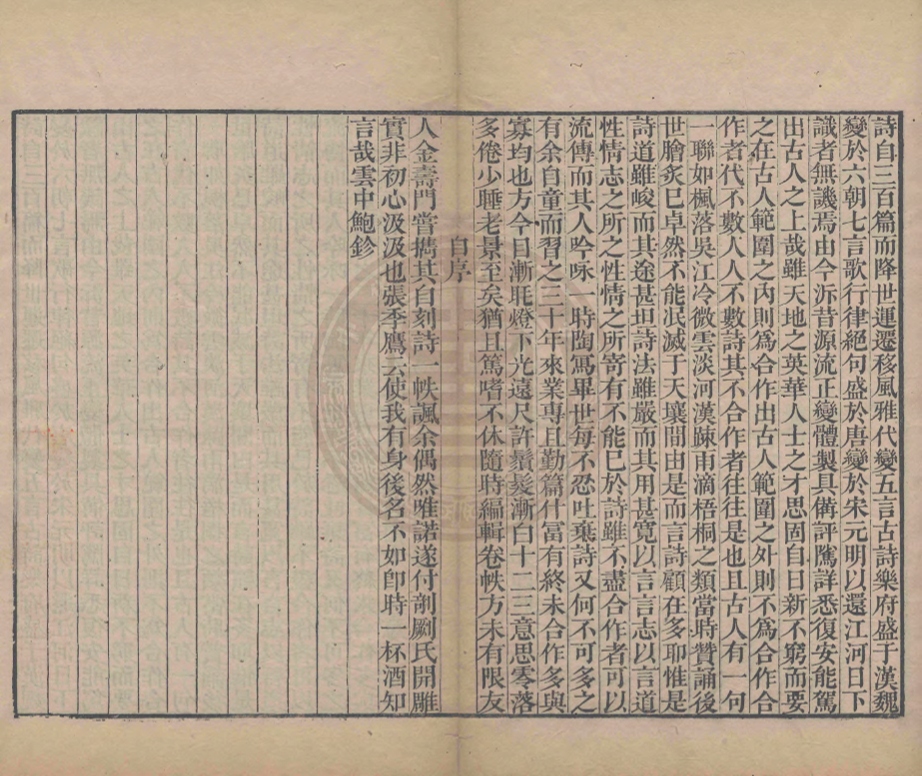 詩自三百篇而降世運遷移風雅代變五言古詩樂府盛于漢魏
變於六朝七言歌行律絕句盛於唐變於宋元明以還江河日下
識者無譏焉由今泝昔源流正變體製具備評隲詳悉復安能駕
出古人之上哉雖天地之英華人士之才思固自日新不窮而要
之在古人範圍之內則爲合作出古人範圍之外則不爲合作合
作者代不數人人不數詩其不合作者往往是也且古人有一句
一聯如楓落吳江冷微雲淡河漢踈雨滴梧桐之類當時贊誦後
世膾炙巳卓然不能泯滅于天壤間由是而言詩顧在多耶惟是
詩道雖峻而其途甚坦詩法雖嚴而其用甚寬以言言志以言道
性情志之所之性情之所寄有不能巳於詩雖不盡合作者可以
流傳而其人吟咏一時陶寫畢世每不忍吐棄詩又何不可多之
有余自童而習之三十年來業専且勤篇什冨有終未合作多與
寡均也方今目漸眊燈下光遠尺許鬚髮漸白十二三意思零落
多倦少睡老景至矣猶且篤嗜不休隨時編輯卷帙方未有限友
自序
人金壽門嘗擕其自刻詩一帙諷余偶然唯諾遂付剞劂氏開雕
實非初心汲汲也張季鷹云使我有身後名不如卽時一杯酒知
言哉雲中鮑鉁